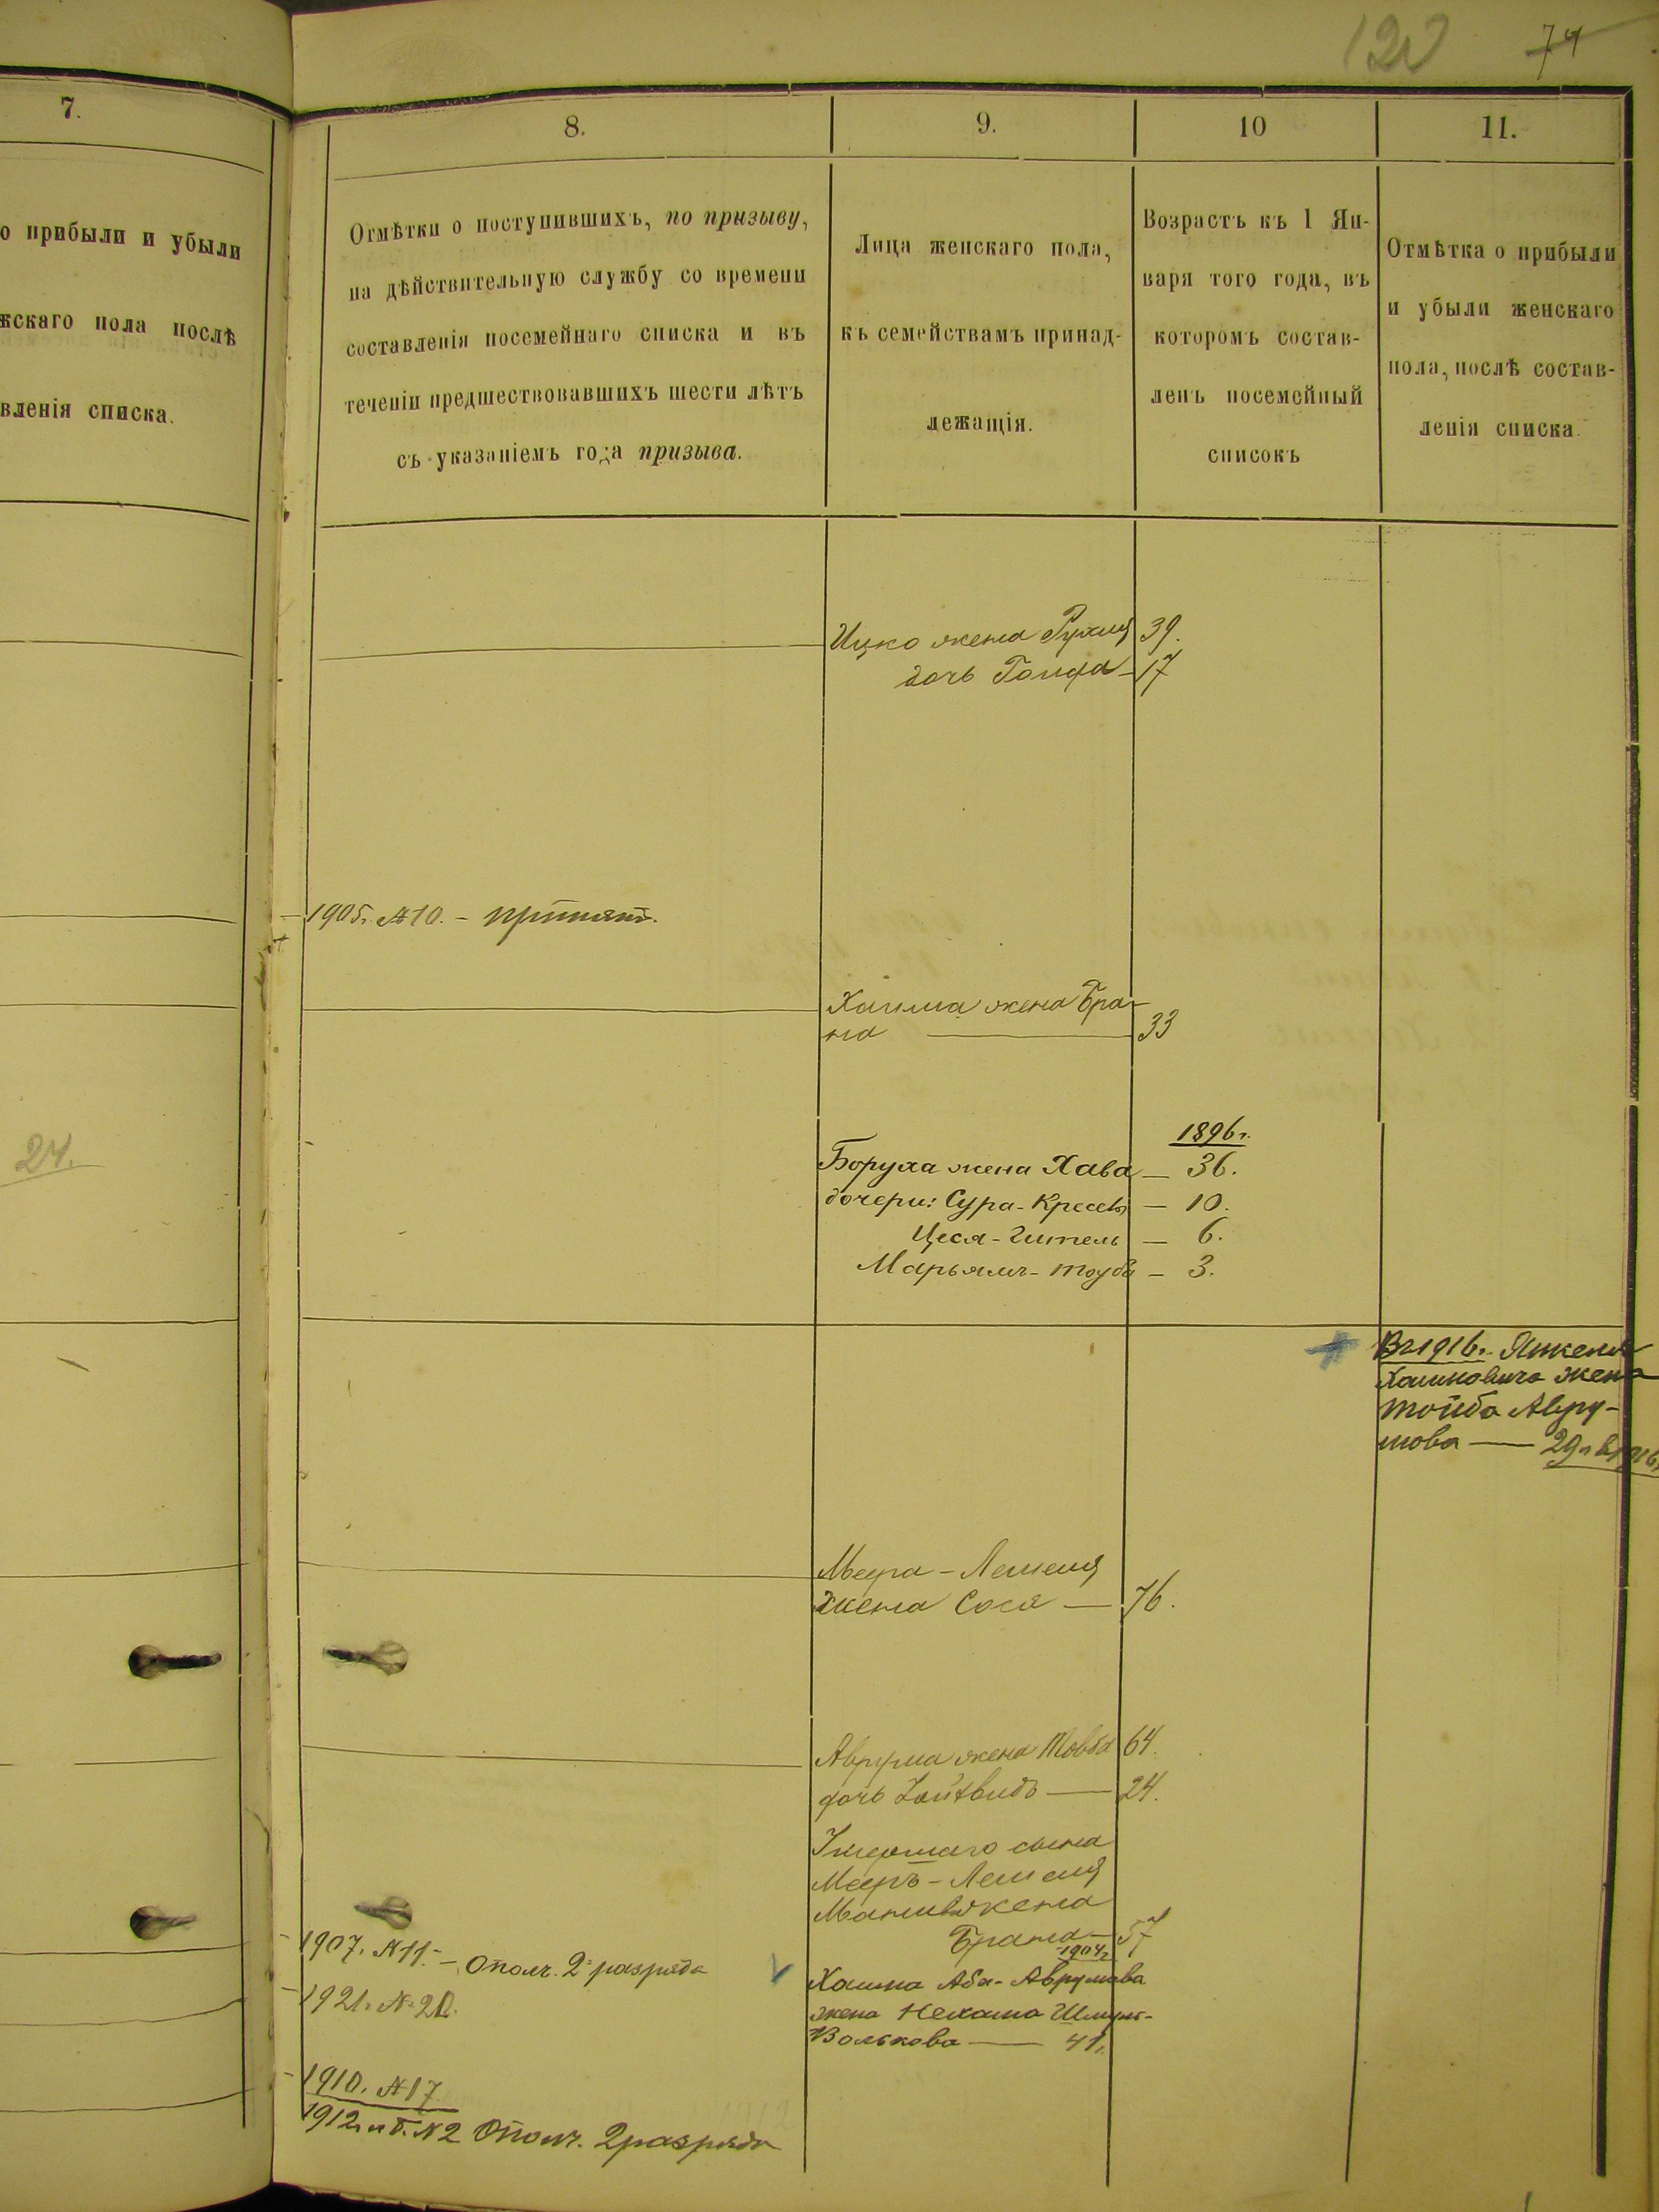 120 74
7. 8. 9. 10 11.
о прибыли и убыли
жскаго пола послѣ
вленія списка.
Отмѣтки о поступившихъ, по призыву,
на дѣйствительную службу со времени
составленія посемейнаго списка и въ
теченіи предшествовавшихъ шести лѣтъ
съ указаніемъ года призыва.
Лица женскаго пола,
къ семействамъ принад-
лежащія.
Возрастъ къ 1 Ян-
варя того года, въ
которомъ состав-
ленъ посемейный
списокъ
Отмѣтка о прибыли
и убыли женскаго
пола, послѣ состав-
ленія списка.
Ицко жена Рухля 39.
дочь 17
1905г. №10. - принятъ.
Хаима жена Бра-
на 33
24.
1896г.
Боруха жена Хава — 36.
дочери: Сура-Кресля — 10.
Цеся-Гитель — 6.
Марьямъ-Тауба — 3.
Въ 1916г. Янкеля
Хаимовича жена
Тойба Авру-
мова — 29 л. в 1916г.
Меера-Лейзеля
жена Сося — 76.
Аврума жена Товба 64.
дочь — 24.
Умершаго сына
Меера-Лейзеля
жена
Брана — 57
1907. №11. — Ополч. 2 разряда
1904г.
Хаима Аба-Аврумова
1921г. № 20.
жена Нехама Шмуль-
Волькова — 41.
1910. №17
1912г. №2 Ополч. 2 разряда